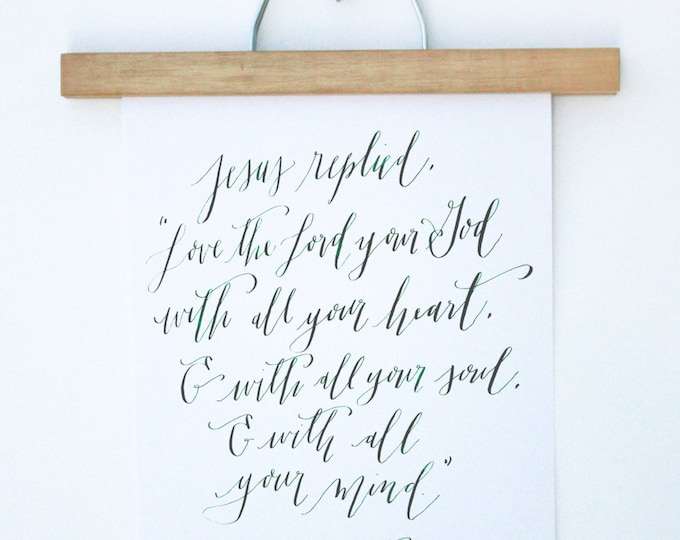 Jesus replied,
"Love the Lord your God
with all your heart,
& with all your soul,
& with all
your mind."